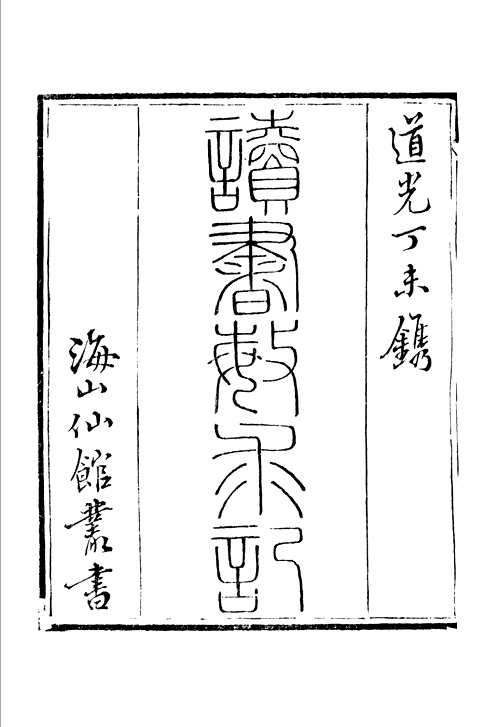 道光丁未鐫
讀書敏求記
海山仙館叢書